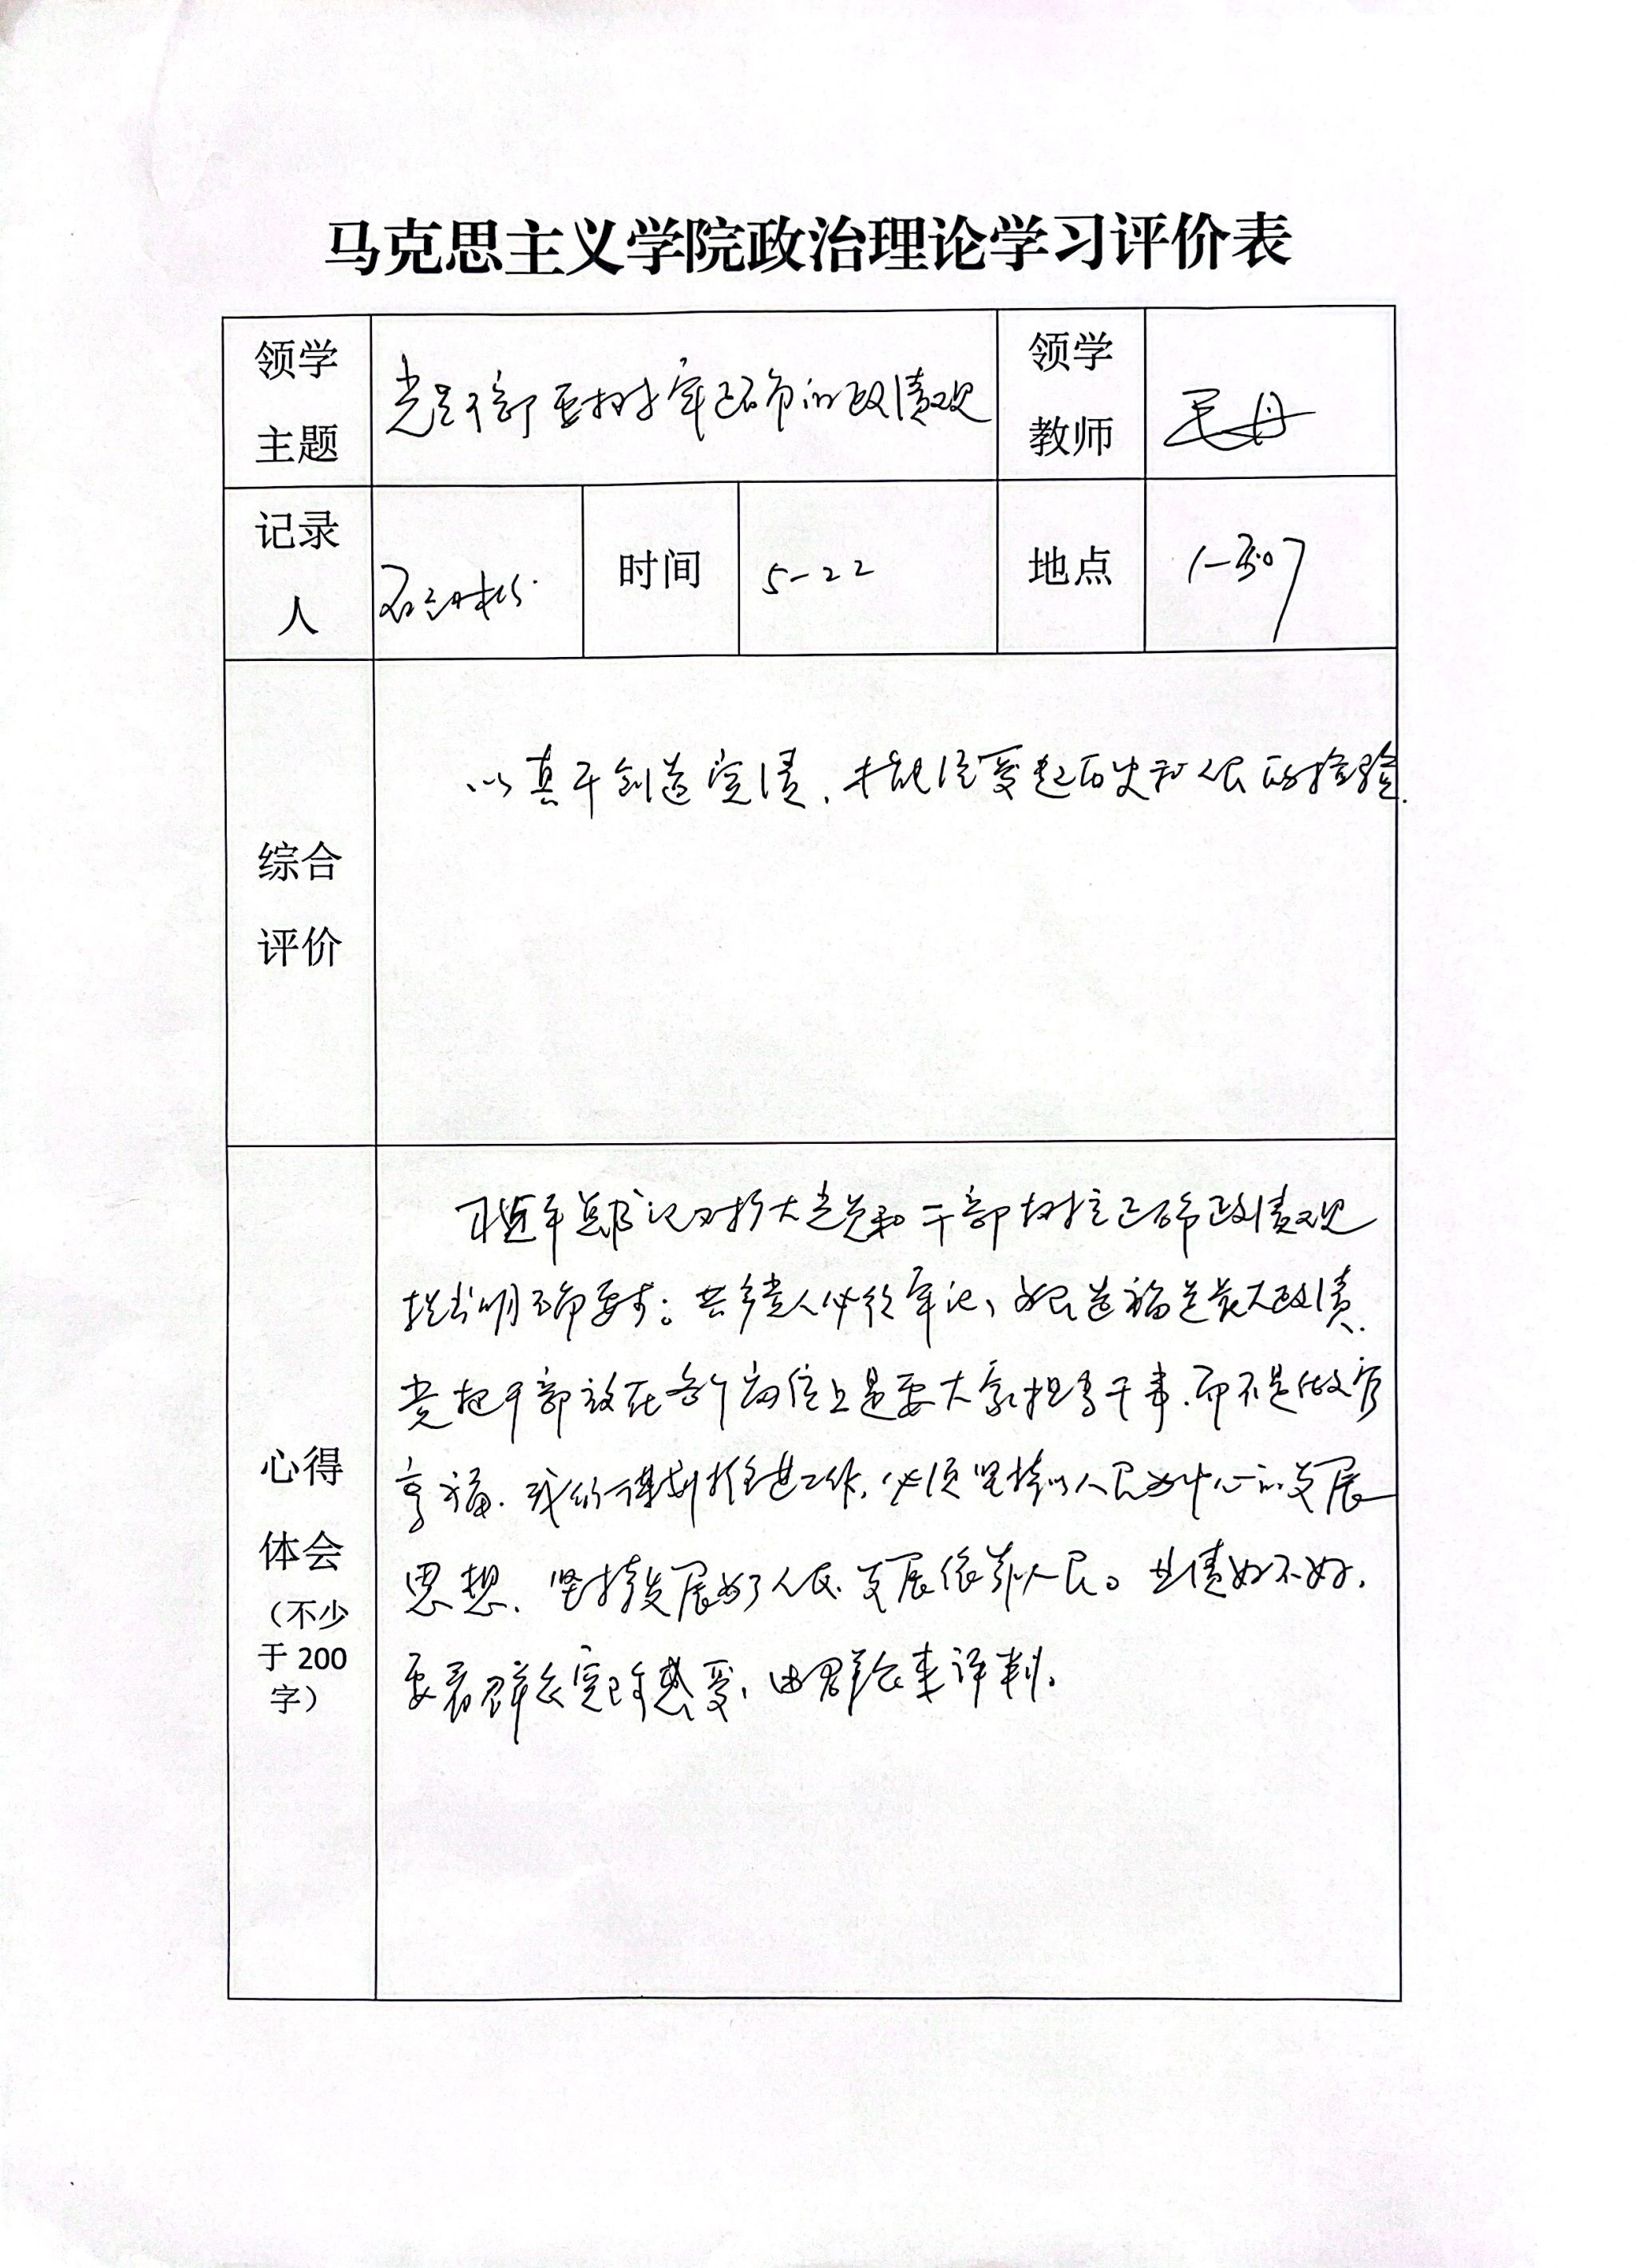 马克思主义学院政治理论学习评价表
领学 领学
主题 党员干部要树牢正确的政绩观 教师 丹
记录 时间 5-22 地点 1-507
人
以真干创造实绩,才能经受起历史和人民的检验.
综合
评价
习近平总书记对扩大党员和干部树立正确政绩观
提出明确要求。共产党人必须牢记、为民造福是最大政绩.
党把干部放在各个岗位上是要大家担当干事.而不是做官
享福.我们谋划推进工作,必须坚持以人民为中心的发展
思想、坚持发展为了人民、发展依靠人民。业绩好不好,
要看群众实际感受,由群众来评判。
心得
体会
(不少
于200
字)